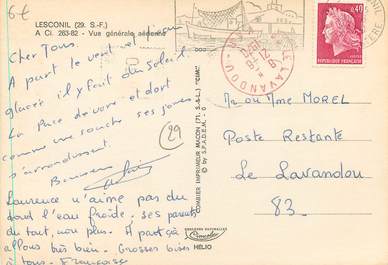 6€
LESCONIL (29. S.-F.)
A Ci. 263-82 - Vue générale aérienne
Cher Tous.
A part le vent et un peu
glacée il y fait du soleil
La Puce dévore et dort
comme une souche ses joues
s'arrondissent.
29
Laurence n'aime pas du
tout l'eau froide. ses parents
du tout, non plus. A part ça
allons très bien. Grosses bises
à tous. Françoise
COMBIER IMPRIMEUR MACON (71. S.-&-L.) "CIM"
© by S.P.A.D.E.M.
LE LAVANDOU
0,40
Mr ou Mme MOREL
Poste Restante
Le Lavandou
83.
Combier
HÉLIO